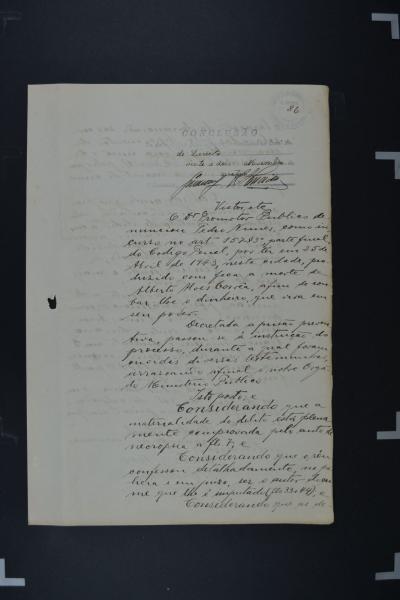 86
CONCLUSÃO
de Direito
vinte e dois
Vistos, etc.
O Dr Promotor Publico de-
nunciou Pedro Nunes, como in-
curso no art. 157 § 3º parte final,
do Codigo Penal, por ter em 25 de
Abril de 1943, nesta cidade, pro-
duzido com faca a morte de
Alberto Alves Corrêa, afim de rou-
bar-lhe o dinheiro, que trazia em
seu poder.
Decretada a prisão preven-
tiva, passou-se à instrução do
processo, durante a qual foram
ouvidas diversas testemunhas,
arrazoando afinal o nobre Orgão
do Ministerio Publico.
Isto posto, e
Considerando que a
materialidade do delito está plena-
mente comprovada pelo auto de
necropsia a fls 7; e
Considerando que o réu
confessou detalhadamente, na po-
licia e em juizo, ser o autor do cri-
me que lhe é imputado (fls 33 e 49), e
Considerando que as de-